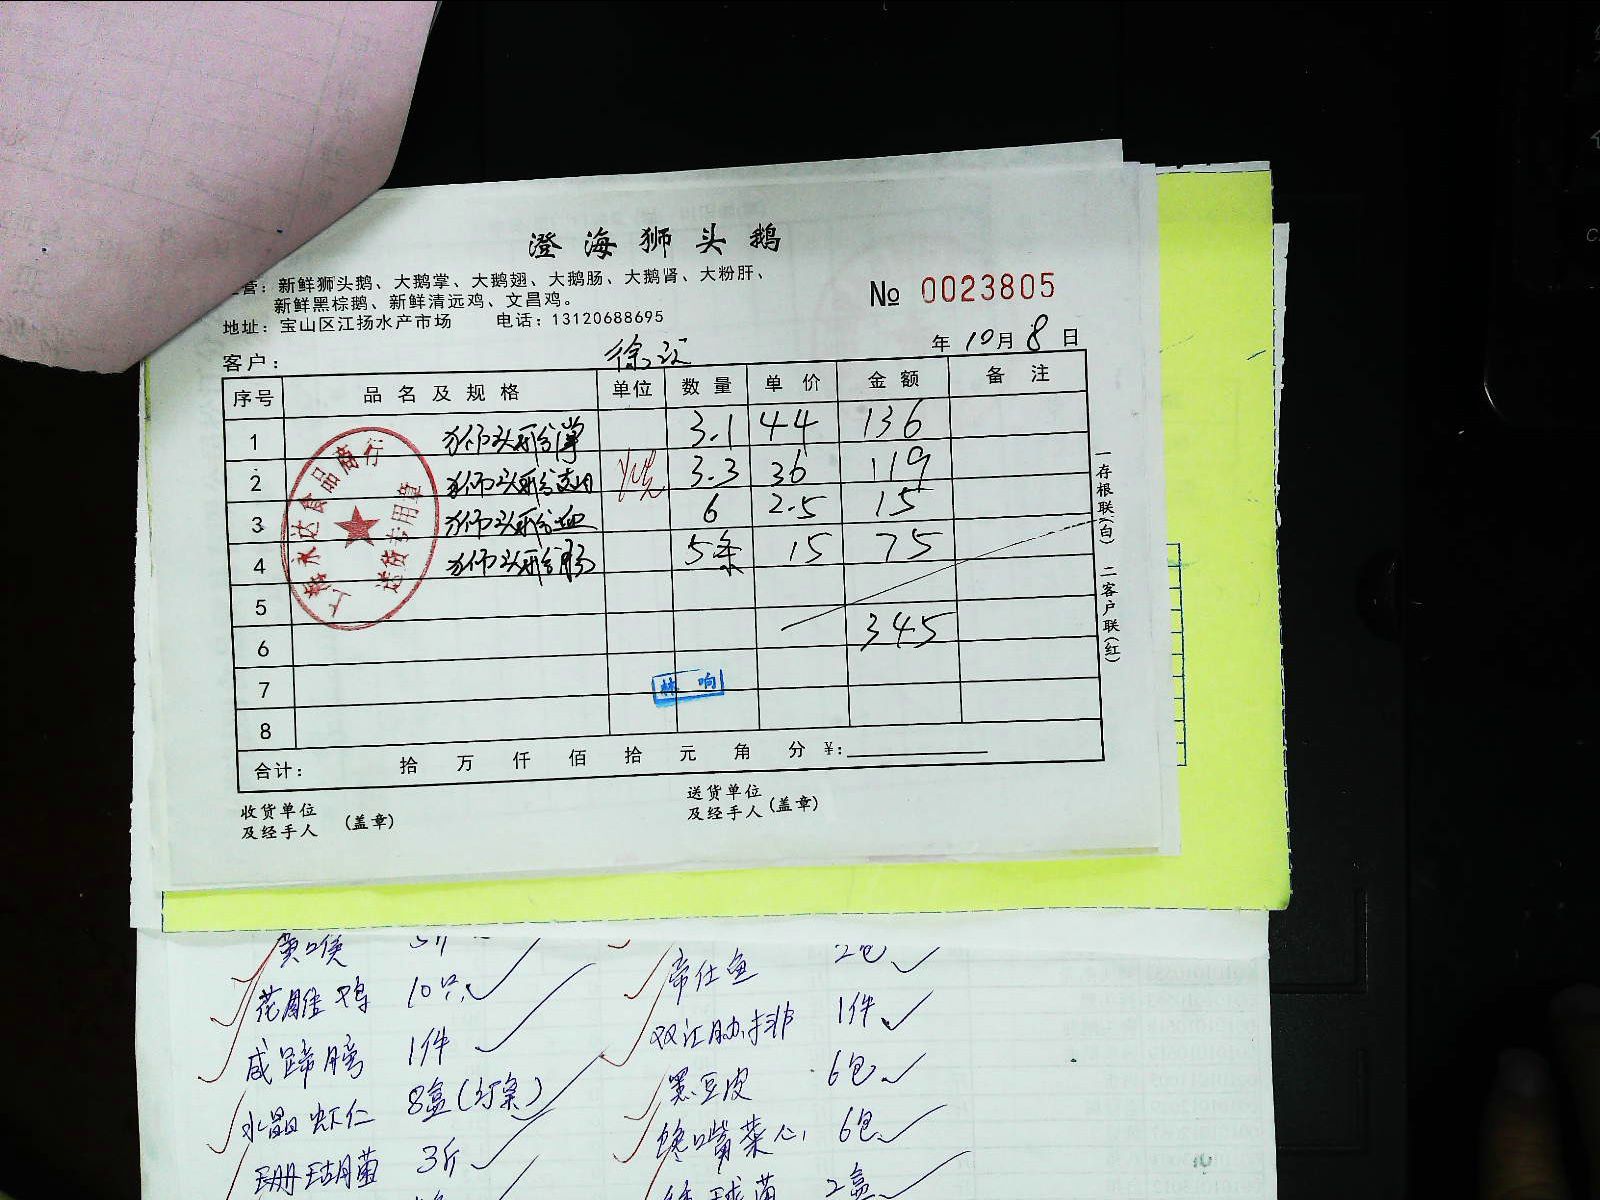 澄海狮头鹅
营：新鲜狮头鹅、大鹅掌、大鹅翅、大鹅肠、大鹅肾、大粉肝、
新鲜黑棕鹅、新鲜清远鸡、文昌鸡。
№ 0023805
地址：宝山区江扬水产市场 电话：13120688695
客户： 年 10月 8 日
序号 品名及规格 单位 数量 单价 金额 备注
1 狮头鹅掌 3.1 44 136
2 狮头鹅 3.3 36 119
3 狮头鹅血 6 2.5 15
4 狮头鹅肠 5条 15 75
5
6 345
7
8
林响
合计： 拾 万 仟 佰 拾 元 角 分 ￥：
收货单位
及经手人 (盖章)
送货单位
及经手人 (盖章)
一存根联(白) 二客户联(红)
永达食品商行
送货专用章
黄喉
花雕鸡 10只
咸蹄膀 1件
水晶虾仁 8盒
珊瑚菌 3斤
帝仕鱼 2包
双汇肋排 1件
黑豆皮 6包
馋嘴菜心 6包
球菌 2盒